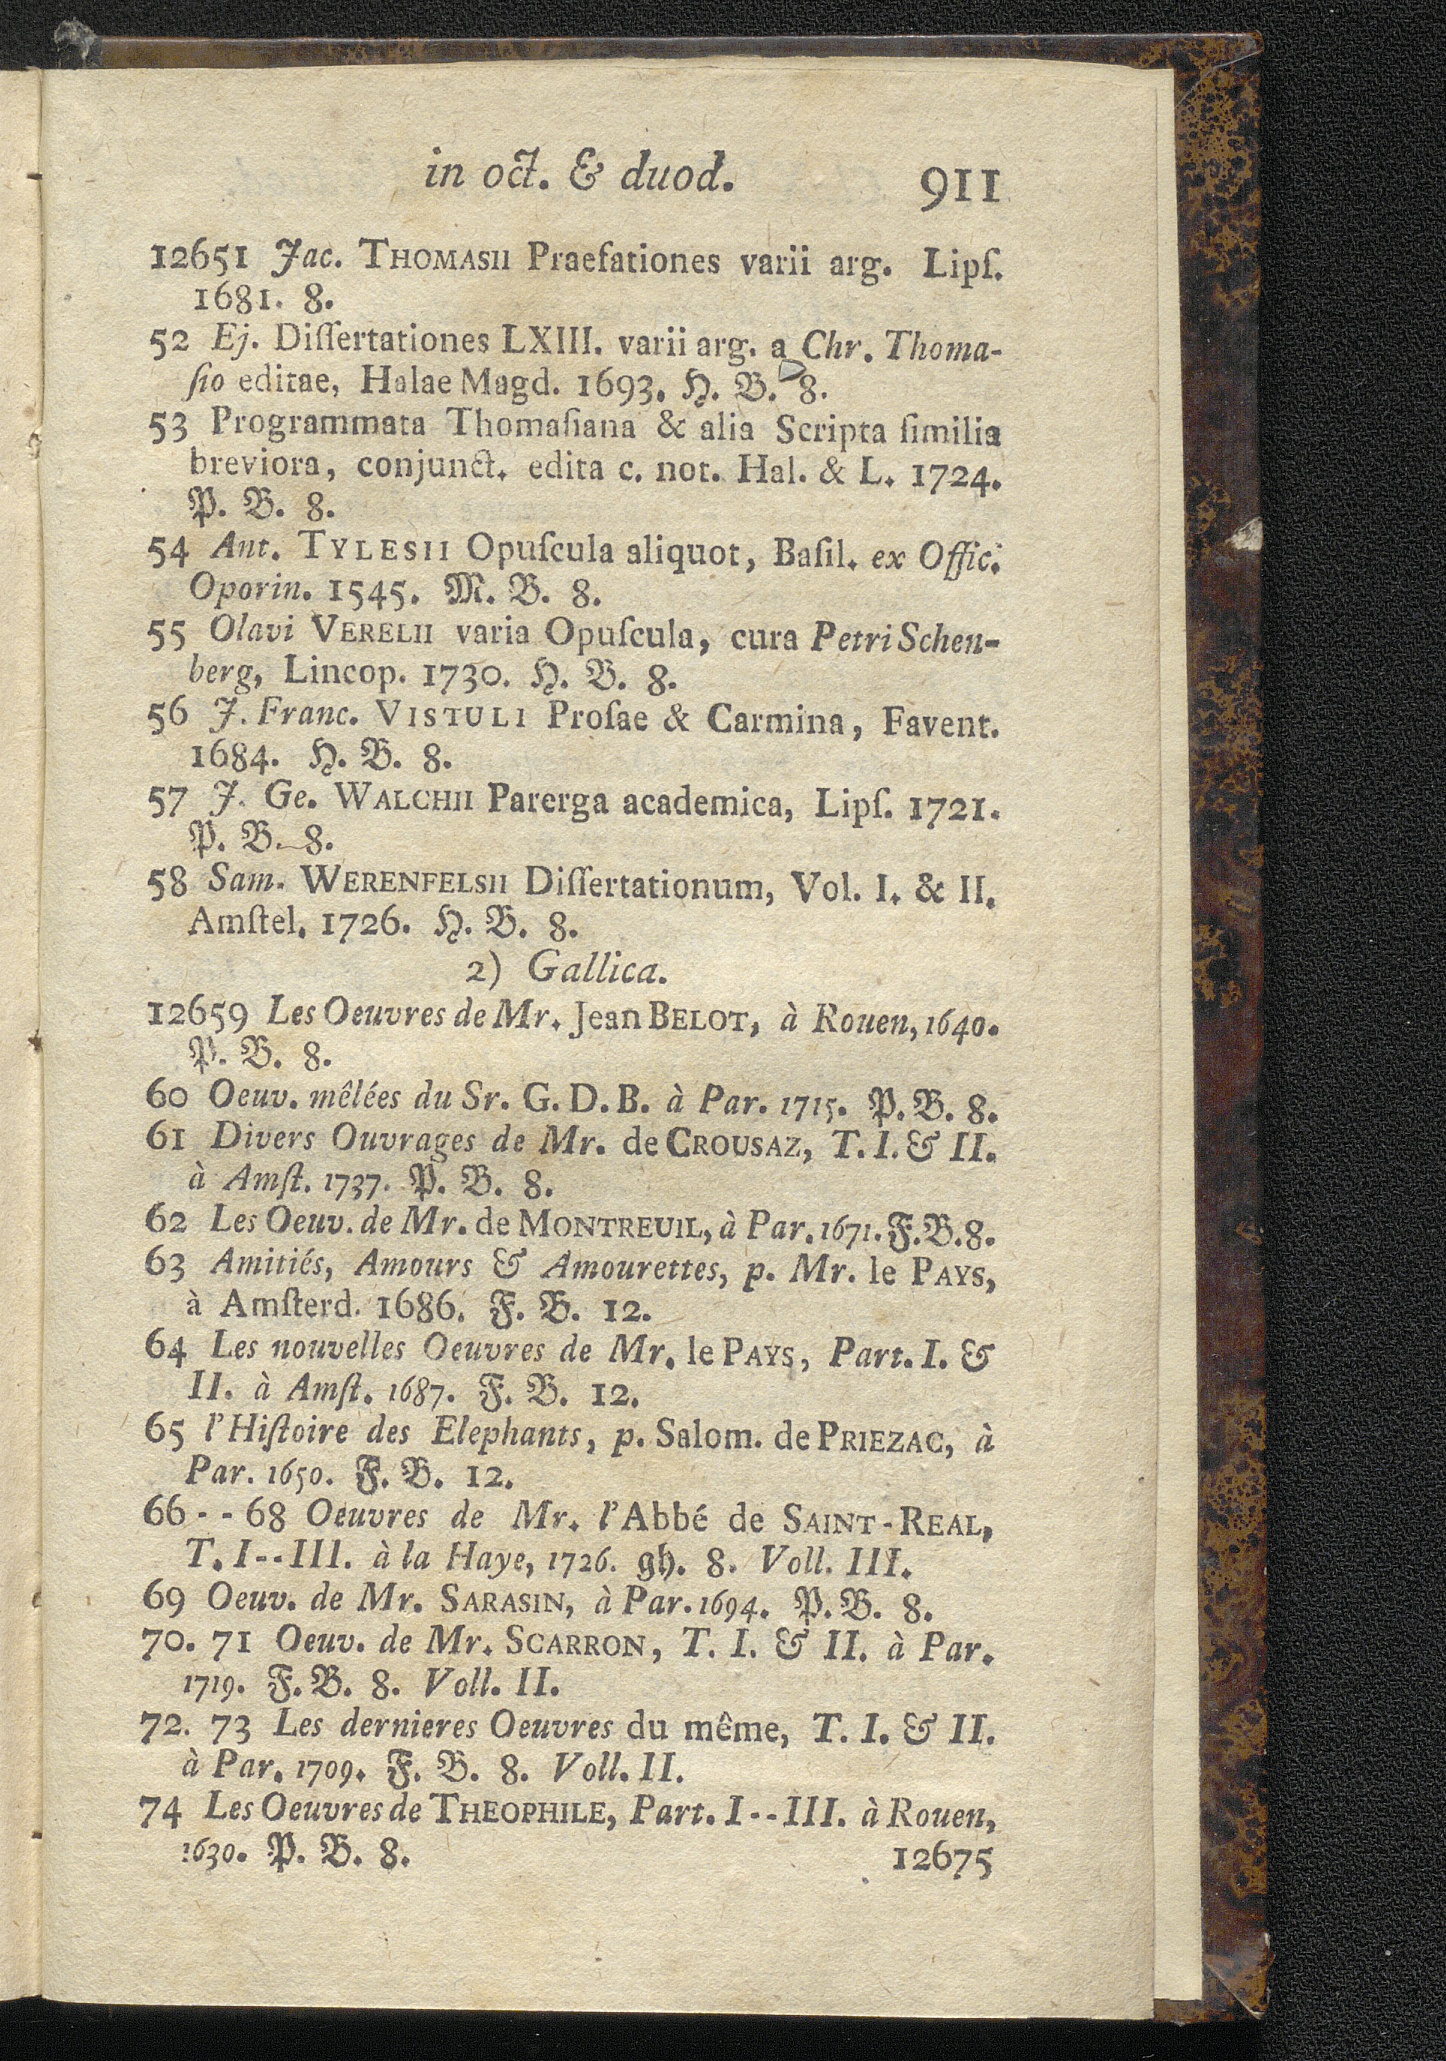 in oct. & duod. 911
12651 Jac. THOMASII Praefationes varii arg. Lipſ.
1681. 8.
52 Ej. Diſſertationes LXIII. varii arg. a Chr. Thoma-
ſio editae, Halae Magd. 1693. H. B. 8.
53 Programmata Thomaſiana & alia Scripta ſimilia
breviora, conjunct. edita c. not. Hal. & L. 1724.
P. B. 8.
54 Ant. TYLESII Opuſcula aliquot, Baſil. ex Offic.
Oporin. 1545. M. B. 8.
55 Olavi VERELII varia Opuſcula, cura Petri Schen-
berg, Lincop. 1730. H. B. 8.
56 J. Franc. VISTULI Proſae & Carmina, Favent.
1684. H. B. 8.
57 J. Ge. WALCHII Parerga academica, Lipſ. 1721.
P. B. 8.
58 Sam. WERENFELSII Diſſertationum, Vol. I. & II.
Amſtel. 1726. H. B. 8.
2) Gallica.
12659 Les Oeuvres de Mr. Jean BELOT, à Rouen, 1640.
P. B. 8.
60 Oeuv. mêlées du Sr. G. D. B. à Par. 1715. P. B. 8.
61 Divers Ouvrages de Mr. de CROUSAZ, T. I. & II.
à Amſt. 1737. P. B. 8.
62 Les Oeuv. de Mr. de MONTREUIL, à Par. 1671. F. B. 8.
63 Amitiés, Amours & Amourettes, p. Mr. le PAYS,
à Amſterd. 1686. F. B. 12.
64 Les nouvelles Oeuvres de Mr. le PAYS, Part. I. &
II. à Amſt. 1687. F. B. 12.
65 l'Hiſtoire des Elephants, p. Salom. de PRIEZAC, à
Par. 1650. F. B. 12.
66 - - 68 Oeuvres de Mr. l'Abbé de SAINT-REAL,
T. I - - III. à la Haye, 1726. gh. 8. Voll. III.
69 Oeuv. de Mr. SARASIN, à Par. 1694. P. B. 8.
70. 71 Oeuv. de Mr. SCARRON, T. I. & II. à Par.
1719. F. B. 8. Voll. II.
72. 73 Les dernieres Oeuvres du même, T. I. & II.
à Par. 1709. F. B. 8. Voll. II.
74 Les Oeuvres de THEOPHILE, Part. I - - III. à Rouen,
1630. P. B. 8. 12675